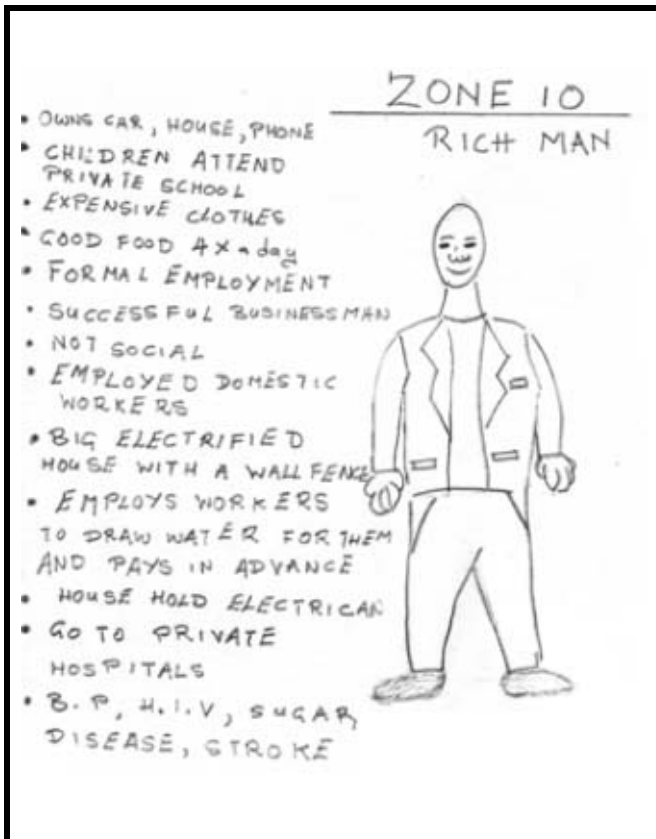 ZONE 10
RICH MAN
• OWNS CAR, HOUSE, PHONE
• CHILDREN ATTEND
PRIVATE SCHOOL
• EXPENSIVE CLOTHES
• GOOD FOOD 4 X a day
• FORMAL EMPLOYMENT
• SUCCESSFUL BUSINESSMAN
• NOT SOCIAL
• EMPLOYED DOMESTIC
WORKERS
• BIG ELECTRIFIED
HOUSE WITH A WALL FENCE
• EMPLOYS WORKERS
TO DRAW WATER FOR THEM
AND PAYS IN ADVANCE
• HOUSE HOLD ELECTRICAN
• GO TO PRIVATE
HOSPITALS
• B.P, H.I.V, SUGAR,
DISEASE, STROKE